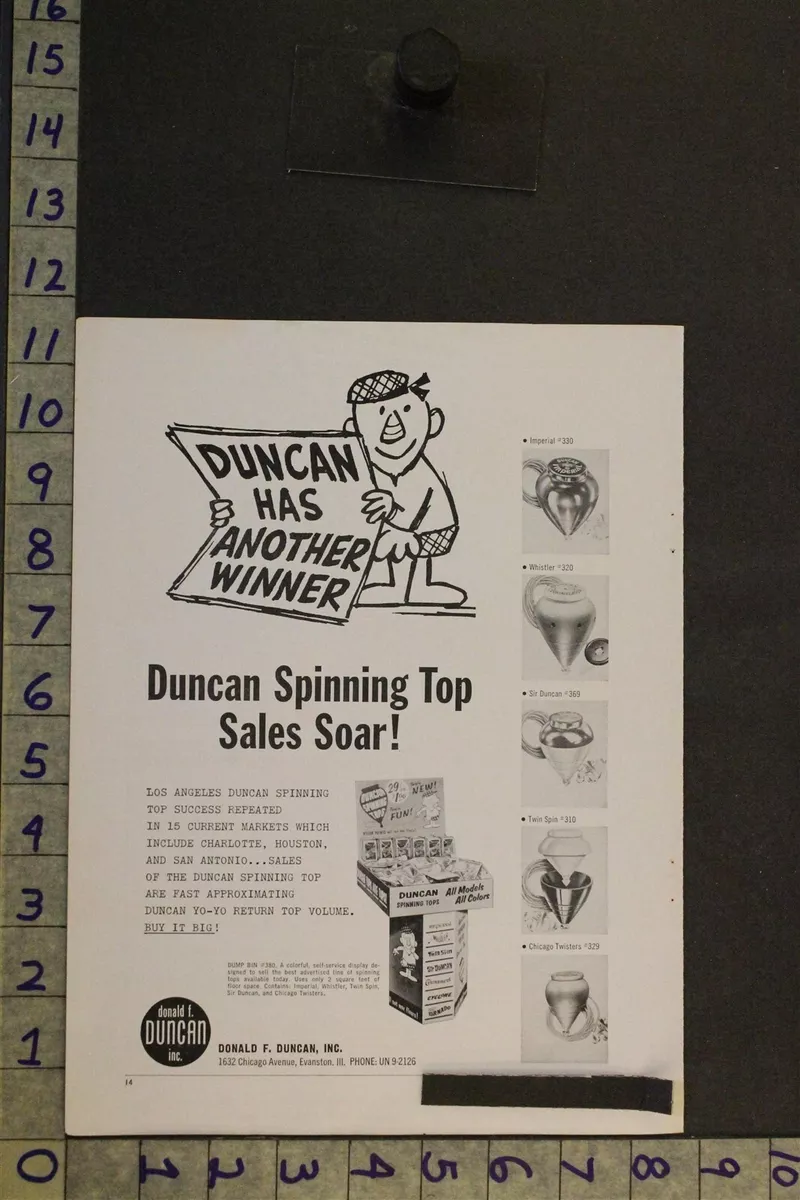 16
15
14
13
12
11
10
9
8
7
6
5
4
3
2
1
0
1
2
3
4
5
6
7
8
9
10
DUNCAN
HAS
ANOTHER
WINNER
Duncan Spinning Top
Sales Soar!
LOS ANGELES DUNCAN SPINNING
TOP SUCCESS REPEATED
IN 15 CURRENT MARKETS WHICH
INCLUDE CHARLOTTE, HOUSTON,
AND SAN ANTONIO...SALES
OF THE DUNCAN SPINNING TOP
ARE FAST APPROXIMATING
DUNCAN YO-YO RETURN TOP VOLUME.
BUY IT BIG!
29
NEW!
FUN!
DUNCAN
SPINNING TOPS
All Models
All Colors
IMPERIAL
Twin Spin
SIR DUNCAN
CYCLONE
TORNADO
DUMP BIN #380. A colorful, self-service display de-
signed to sell the best advertised line of spinning
tops available today. Uses only 2 square feet of
floor space. Contains: Imperial, Whistler, Twin Spin,
Sir Duncan, and Chicago Twisters.
donald f.
DUNCAN
inc.
DONALD F. DUNCAN, INC.
1632 Chicago Avenue, Evanston, Ill. PHONE: UN 9-2126
14
• Imperial #330
• Whistler #320
• Sir Duncan #369
• Twin Spin #310
• Chicago Twisters #329